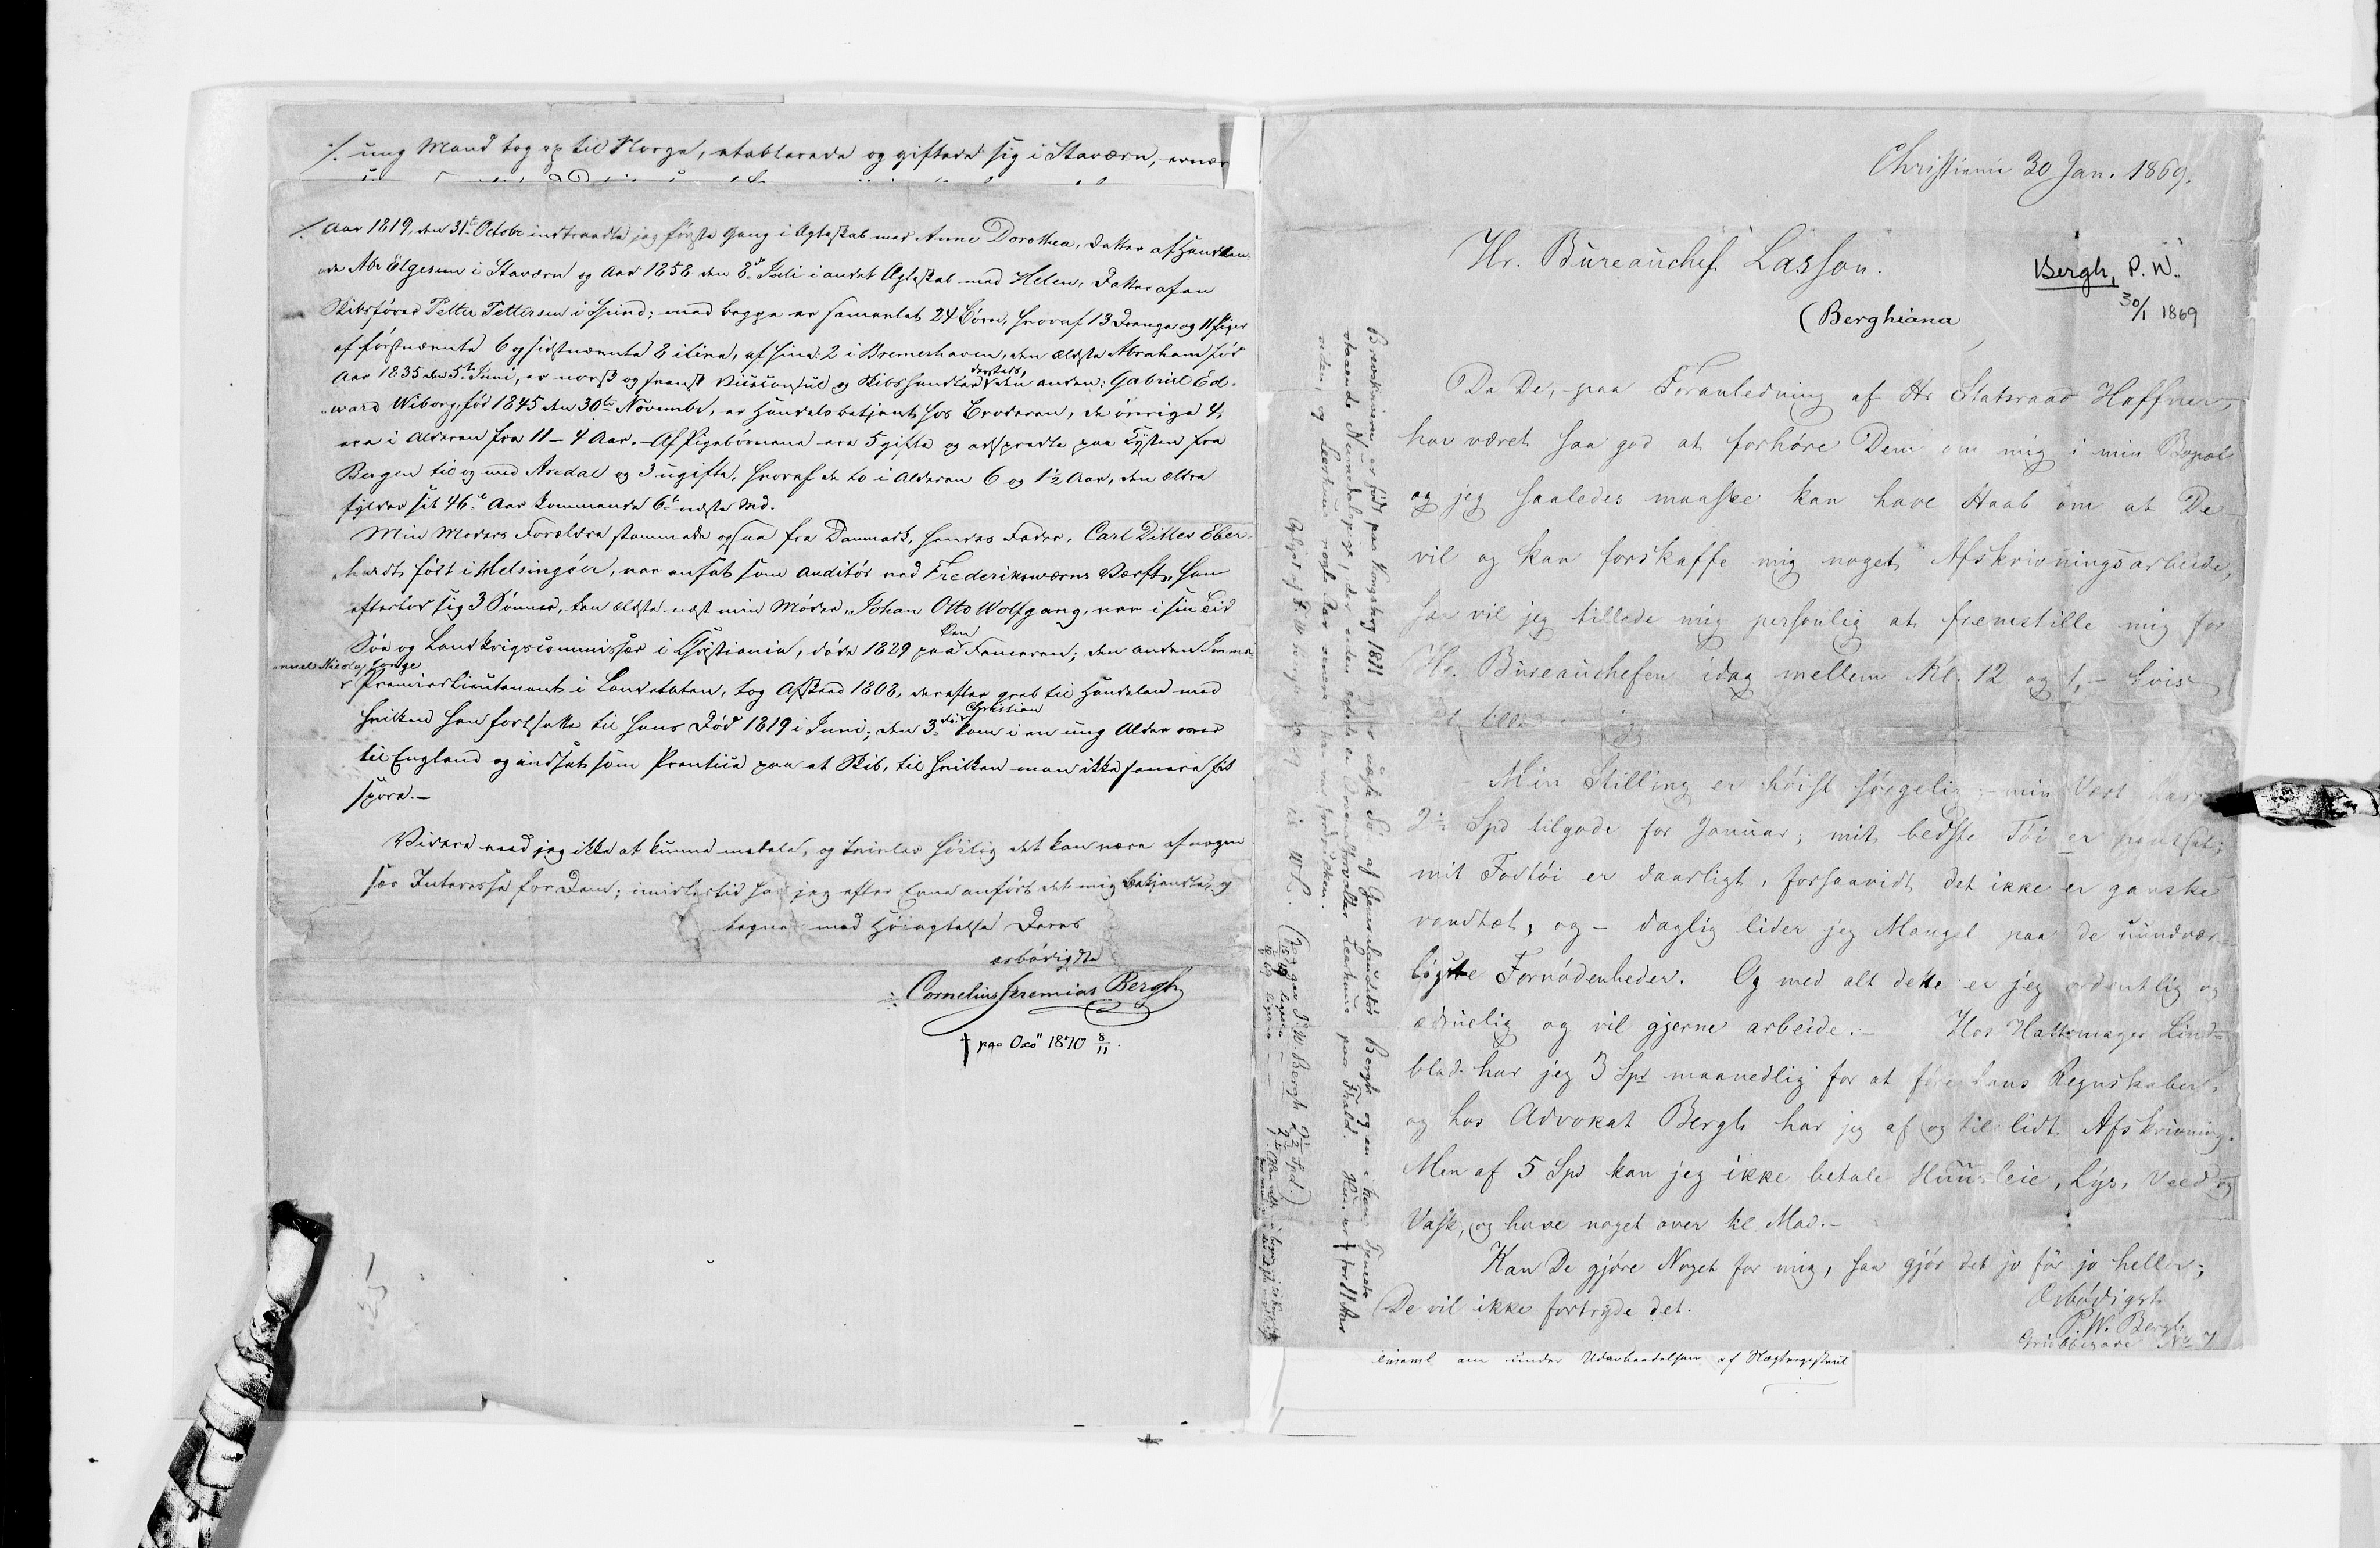 ·/. ung Mand tog op til Norge, etablerede og giftede sig i Stavern,
·/. Aar 1819, den 31te Octobr indtraadte jeg første Gang i Ægteskab med Anne Dorothea, Datter af Handlen-
de Abr Elgesem i Stavern og Aar 1858 den 8de Juli i andet Ægteskab med Helen, Datter af en
Skibsfører Petter Pettersen i ; med begge er samlet 24 Börn, hvoraf 13 Drenge og 11 Piger
af förstnævnte 6 og sidstnævnte 8 ilive, af hine: 2 i Bremerhaven, den ældste Abraham född
Aar 1835 den 5te Juni, er norsk og svensk Viceconsul og Skibshandler dersteds, den anden: Gabriel Ed-
ward Wiborg, född 1845 den 30te Novembr, er Handelsbetjent hos Broderen, de övrige 4,
ere i Alderen fra 11 – 4 Aar. – Af Pigebörnene ere 5 gifte og adspredte paa Kysten fra
Bergen til og med Aredal og 3 ugifte, hvoraf de to i Alderen 6 og 1½ Aar, den ældre
fylder sit 46de Aar kommende 6te næste Md.
Min Moders Forældre stammede ogsaa fra Danmark, hendes Fader, Carl Ditlev Eber-
hardt, født i Helsingöer, var ansat som Auditör ved Frederiksværns Værft, han
efterlod sig 3 Sönner, den ældste næst min Moder, Johan Otto Wolfgang, var i sin Tid
Söe og Landkrigscommissær i Christiania, döde 1829 paa Veien ; den anden Imma-
nuel Nicolay Lange
Premierlieutenant i Landetaten, tog Afsked 1808, derefter greb til Handelen med
hvilken han fortsatte til hans Död 1819 i Juni; den 3die Christian kom i en ung Alder over
til England og indsat som Prentice paa et Skib, til hvilken man ikke senere fik
spore. –
Videre veed jeg ikke at kunne meddele, og tvivler höilig det kan være af nogen
sær Interesse for Dem; imidlertid har jeg efter Evne anfört det mig bekjendte, og
tegner med Höiagtelse Deres
ærbödigste
Cornelius Jeremias Bergh
† paa Oxö 1870 8/11.
Christiania 30 Jan. 1869.
Hr. Bureauchef Lasson.
Bergh, P. W.
30/1 1869
(Berghiana
Da De, paa Foranledning af Hr Statsraad Haffner,
har været saa god at forhöre Dem om mig i min Bopæl
og jeg saaledes maaske kan have Haab om at De
vil og kan forskaffe mig noget Afskrivningsarbeide,
saa vil jeg tillade mig personlig at fremstille mig for
Hr. Bureauchefen idag mellem Kl. 12 og 1, – hvis
– Min Stilling er höist sörgelig; – min Vert har
2½ Spd tilgode for Januar; mit bedste Töi er pantsat;
mit Fodtöi er daarligt, forsaavidt det ikke er ganske
vandtæt, og – daglig lider jeg Mangel paa de uundvær-
ligste Fornödenheder. Og med alt dette er jeg ordentlig og
ædruelig og vil gjerne arbeide. – Hos Hattemager Lind-
blad har jeg 3 Spd maanedlig for at före hans Regnskaber,
og hos Advokat Bergh har jeg af og til lidt Afskrivning.
Men af 5 Spd kan jeg ikke betale Huusleie, Lys, Veed og
Vask, og have noget over til Mad. –
Kan De gjöre Noget for mig, saa gjör det jo för jo heller;
De vil ikke fortryde det.
Ærbödigst
P. W. Bergh
Grubbegade No 7
Brevskriveren er født paa Kongsberg 1811 og er uægte Sön af Generalauditör Bergh og en i hans Tjeneste
staaende Numedalspige, der siden Leerhuus paa Fhald. Hun er † for 11 Aar
siden, og Leerhuus nogle Aar senere
(Jeg gav P. W. Bergh ½ Spd.)
indsaml am under Udarbeidelsen af Slægtregistret